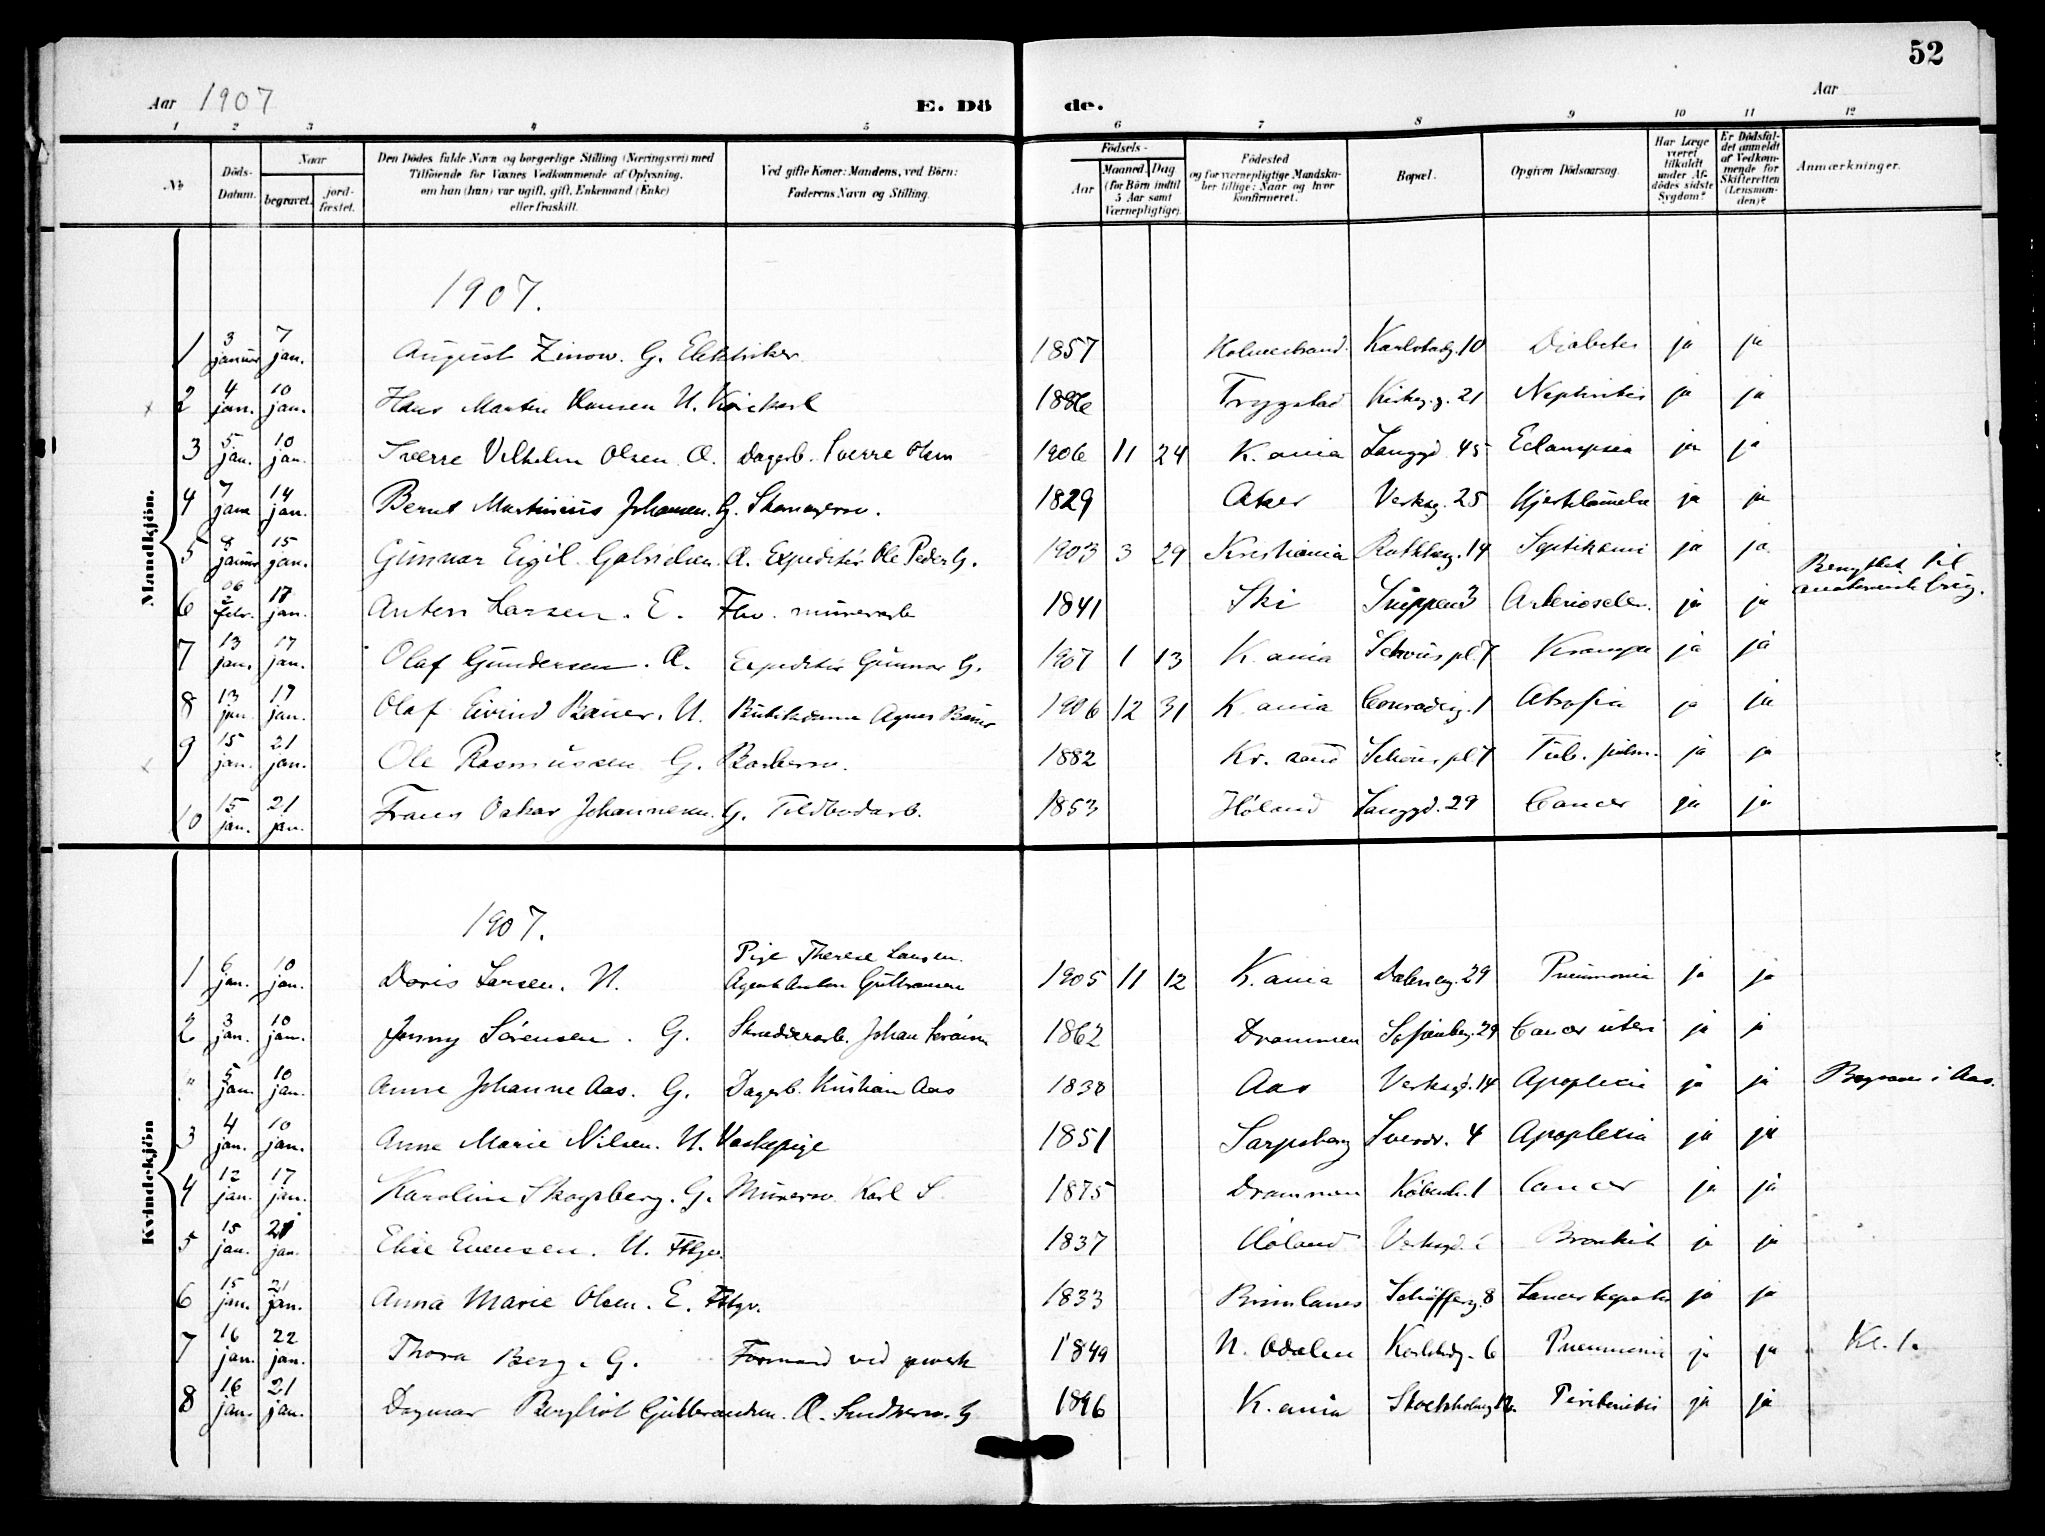 52
Aar 1907
E. Dö de.
Aar
1 2 3 4 5 6 7 8 9 10 11 12
No
Döds-Datum.
Naar begravet. jord-fæstet.
Den Dödes fulde Navn og borgerlige Stilling (Næringsvei) med Tilföiende for Voxnes Vedkommende af Oplysning, om han (hun) var ugift, gift, Enkemand (Enke) eller fraskilt.
Ved gifte Koner: Mandens, ved Börn: Faderens Navn og Stilling.
Födsels- Aar Maaned. Dag (for Börn indtil 5 Aar samt Værnepligtige).
Födested og for værnepligtige Mandskaber tillige: Naar og hvor konfirmeret.
Bopæl.
Opgiven Dödsaarsag.
Har Læge været tilkaldt under Afdödes sidste Sygdom?
Er Dödsfaldet anmeldt af Vedkommende for Skifteretten (Lensmanden)?
Anmærkninger.
Mandkjön.
1907.
1 3 januar 7 jan. August Zinow. G. Elektriker 1857 Holmestrand. Karlstadg. 10 Diabetes ja ja
2 4 jan. 10 jan. Hans Martin Hansen U. 1886 Trygstad 21 Nephritis ja ja
3 5 jan. 10 jan. Sverre Vilhelm Olsen. Æ. Dagarb. Sverre Olsen 1906 11 24 K.ania Langgd. 45 Eclampsia ja ja
4 7 jan. 14 jan. Bernt Martinius Johansen. G. Skomagersv. 1829 Aker Verksg. 25 ja ja
5 8 januar 15 jan. Gunnar Eigil Gabrielsen. Æ. Expeditör Ole Peder G. 1903 3 29 Kristiania 14 Septikæmi ja ja
6 06 2 febr. 17 jan. Anton Larsen. E. Fhv. murerarb 1841 Ski 3 Arterioscler. ja ja Benyttet til anatomisk brug.
7 13 jan. 17 jan. Olaf Gundersen. Æ. Expeditör Gunnar G. 1907 1 13 K.ania Schous pl. 7 Krampe ja ja
8 13 jan. 17 jan. Olaf Eivind Bauer. U. Butikdame Agnes Bauer 1906 12 31 K.ania Conradig. 1 Atrofia ja ja
9 15 jan. 21 jan. Ole Rasmussen G. Barbersv. 1882 Kr. sand Schous pl. 7 Tub. pulm. ja ja
10 15 jan. 21 jan. Frans Oskar Johannesen. G. Toldbodarb. 1853 Höland Langgd. 29 Cancer ja ja
Kvindekjön
1907.
Pige Therese Larsen.
1 6 jan. 10 jan. Doris Larsen. U. Agent Anton Gulbransen 1905 11 12 K.ania Dæleneg. 29 Pneumonia ja ja
2 3 jan. 10 jan. Jenny Sörensen. G. Skrædderarb. Johan 1862 Drammen Sofienbg. 29 Cancer uteri ja ja
" 5 jan. 10 jan. Anne Johanne Aas. G. Dagarb. Kristian Aas 1838 Aas Verksgd. 14 Apoplexia ja ja Begraves i Aas.
3 4 jan. 10 jan. Anne Marie Nilsen. U. Vaskepige 1851 Sarpsborg Sverdr. 4 Apoplexia ja ja
4 12 jan. 17 jan. Karoline Skogsberg. G. Murersv. Karl S. 1875 Drammen Köbenh. 1 Cancer ja ja
5 15 jan. 21 jan. Elise Evensen. U. Fttgv. 1837 Höland Verksgd. Bronkit ja ja
6 15 jan. 21 jan. Anna Marie Olsen. E. Fttgv. 1833 Brunlanes 8 Cancer hepatis ja ja
7 16 jan. 22 jan. Thora Berg. G. Formand ved 1849 N. Odalen Karlstadg. 6 Pneumonia ja ja Kl. 1.
8 16 jan. 21 jan. Dagmar Bergliot Gulbrandsen. Æ. Smedsv. G 1896 K.ania Stockholmg. Peritonitis ja ja